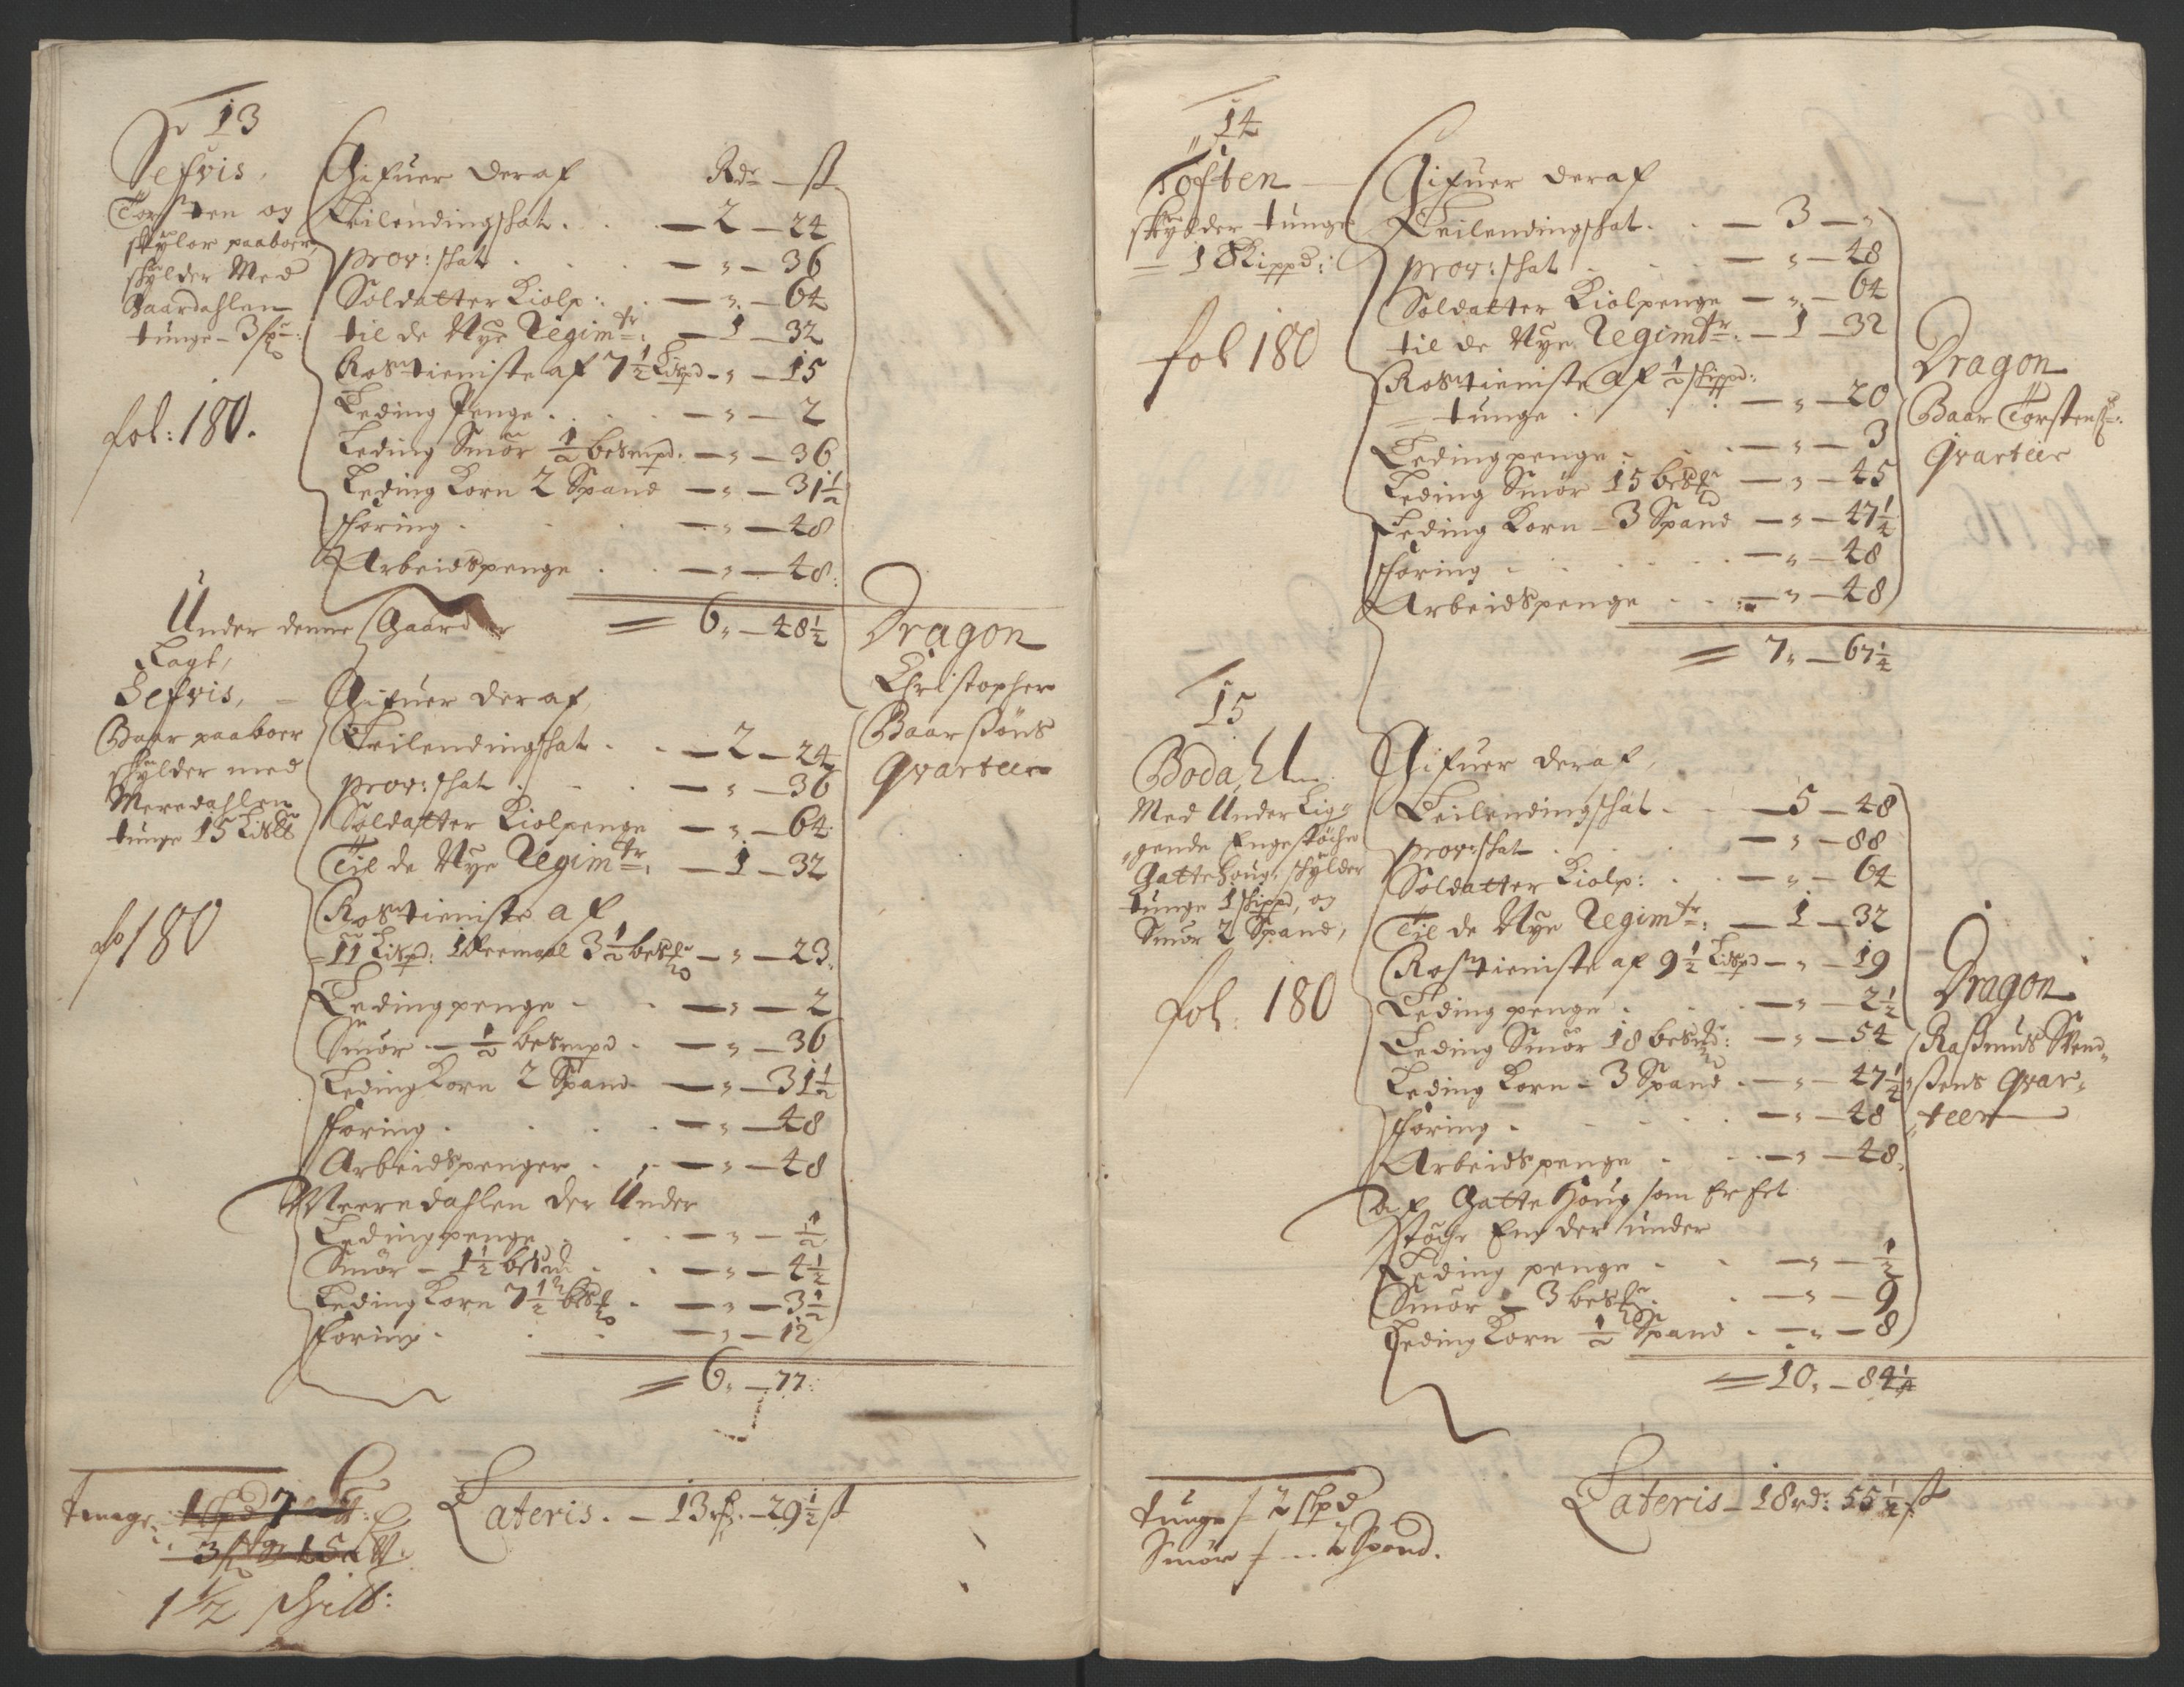 No 13
Sefvis,
Torsten og
skÿlar paaboer
skylder Med
Gaardahlen
tunge - 3 sp:
fol: 180.
Gifuer deraf Rdr — ß
Leilendingschat . — 2 — 24
prov: schat . — " — 36
Soldatter Kiolp: . — " — 64
til de Nye Regimtr: — 1 — 32
Rostieniste af 7½ Lispd — " — 15
Leding Penge . — " — 2
Leding Smör ½ besmpd. — " — 36
Leding Korn 2 Spand — " — 31½
Foring . — " — 48
Arbeidspenge . — " — 48.
= 6 " — 48½
Under denne Gaard er
Lagt,
Sefvis,
Baar paaboer
skÿlder med
Meredahlen
tunge 15 Lislb
fo 180
Gifuer deraf,
Leilendingschat . — 2 — 24
prov: schat . — " — 36
Soldatter Kiolpenge — " — 64
Til de Nye Regimtr: — 1 — 32
Rostieniste af
11 Lispd: 1 Remaal 3½ besm — " — 23.
Ledingpenge . — " — 2
Smör — ½ besmpd . — " — 36
Leding Korn 2 Spand — " — 31½
Foring . — " — 48
Arbeidspenger . — " — 48
Meeredahlen der Under
Ledingpenge . — " — ½
Smör — 1½ besmd . — " — 4½
Leding Korn 7½ besm . — " — 3½
Foring . — " — 12
= 6 " — 77:
Dragon
Christopher
Baarsöns
Qvarteer
tunge
1½ schilb:
Lateris . — 13 rdr. — 29½ ß
14
Töften
skÿlder tunge
— 1 Skippd:
fol 180
Gifuer deraf
Leilendingschat . — 3 — "
prov: schat . — " — 48
Soldatter Kiolpenge — " — 64
til de Nye Regimtr: — 1 — 32
Rostieniste af ½ skippd:
= tunge . — " — 20
Ledingpenge . — " — 3
Leding Smör 15 besm — " — 45
Leding Korn — 3 Spand — " — 47¼
Foring . — " — 48
Arbeidspenge . — " — 48
= 7 " — 67¼
Dragon
Baar Torstens:
Qvarteer
15
Bodahl
Med Under Lig=
gende Engestöche
Gattehoug: skÿlder
tunge 1 skippd, og
Smör 2 Spand,
fol: 180
Gifuer deraf,
Leilendingschat . — 5 — 48
prov: schat . — " — 88
Soldatter Kiolp: . — " — 64
Til de Nye Regimtr: — 1 — 32
Rostieniste af 9½ Lispd — " — 19
Leding penge . — " — 2½
Leding Smör 18 besmd: — " — 54
Leding Korn — 3 Spand . — " — 47¼
Foring . — " — 48
Arbeidspenge . — " — 48.
af Gatte Houg som Er Eet
stöche Eng der under
Leding penge . — " — ½
Smör — 3 besm . — " — 9
Leding Korn ½ Spand . — " — 8
= 10 " — 84¼
Dragon
Rasmus Svend=
sens Qvar=
teer
tunge / 2 skpd
Smör / .. 2 Spand.
Lateris — 18 rdr: 55½ ß